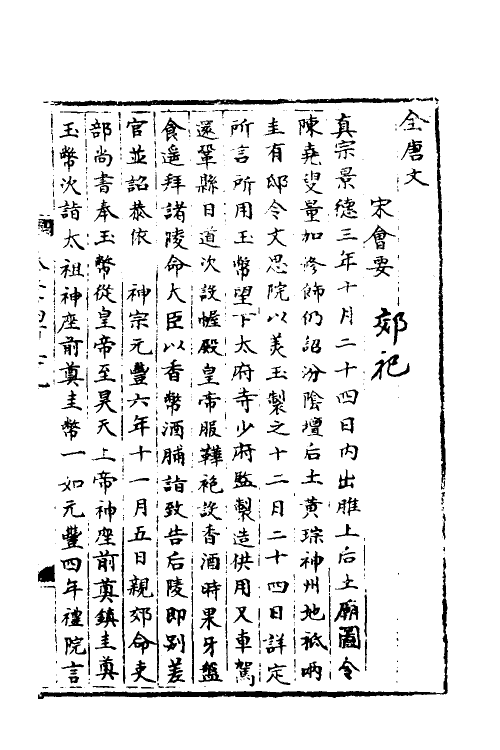 全唐文
宋會要 郊祀
真宗景德三年十月二十四日內出脽上后土廟圖令
陳堯叟量加修飾仍詔汾陰壇后土黃琮神州地祗兩
圭有邸令文思院以美玉製之十二月二十四日詳定
所言所用玉幣望下太府寺少府監製造供用又車駕
還鞏縣日道次設幄殿皇帝服鞾袍設香酒時果牙盤
食遥拜諸陵命大臣以香幣酒脯詣致告后陵即别差
官並詔恭依 神宗元豐六年十一月五日親郊命吏
部尚書奉玉幣從皇帝至昊天上帝神座前奠鎮圭奠
玉幣次詣太祖神座前奠圭幣一如元豐四年禮院言